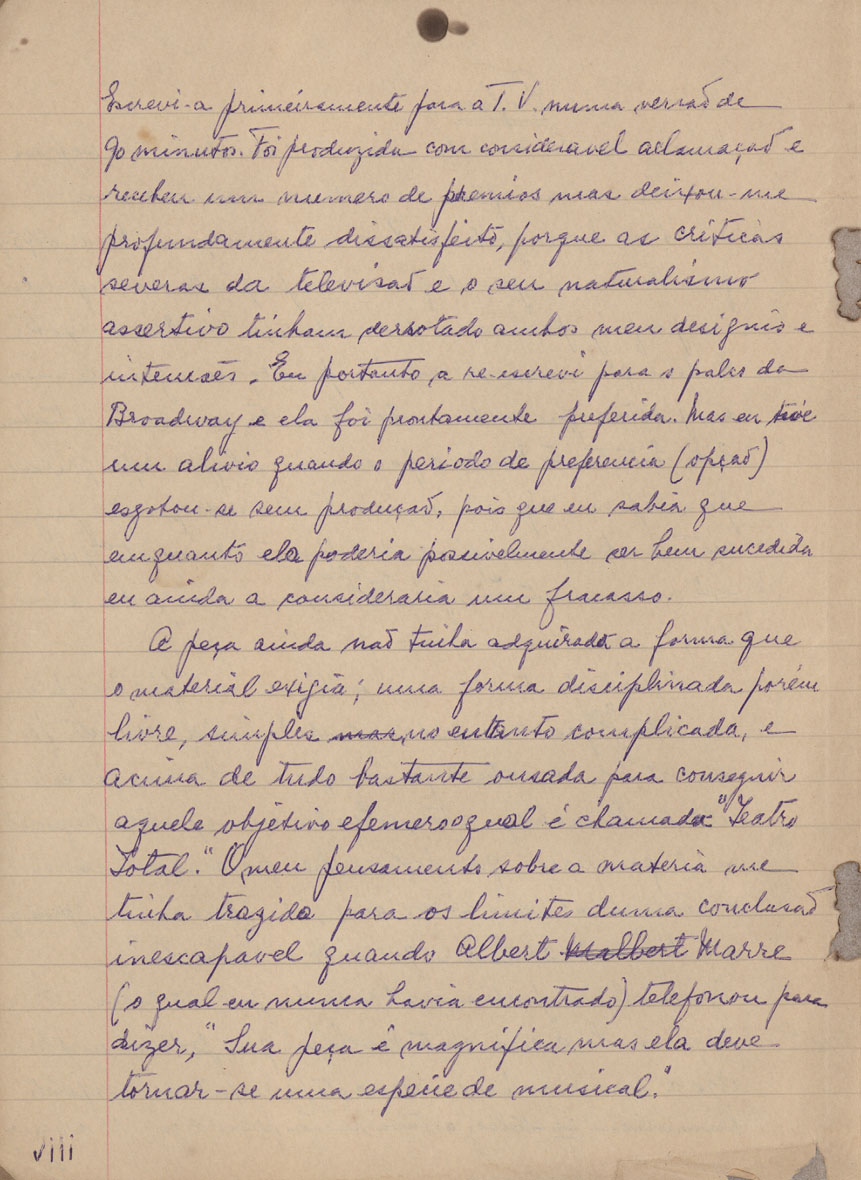 Escrevi-a primeiramente para a T.V. numa versão de
90 minutos. Foi produzida com consideravel aclamação e
recebeu um numero de premios mas deixou-me
profundamente dissatisfeito, porque as criticas
severas da televisão e o seu naturalismo
assertivo tinham derrotado ambos meu designio e
intensões. Eu portanto a re-escrevi para o palco da
Broadway e ela foi prontamente preferida. Mas eu tive
um alivio quando o periodo de preferencia (opção)
esgotou-se sem produção, pois que eu sabia que
enquanto ela poderia possivelmente ser bem sucedida
eu ainda a consideraria um fracasso.
A peça ainda não tinha adquirado a forma que
o material exigia; uma forma disciplinada porém
livre, simples mas no entanto complicada, e
acima de tudo bastante ousada para conseguir
aquele objétivo efemero o qual é chamado "Teatro
Total." O meu pensamento sobre a materia me
tinha trazido para os limites duma conclusão
inescapavel quando Albert Malbert Marre
(o qual eu nunca havia encontrado) telefonou para
dizer, "Sua peça é magnifica mas ela deve
tornar-se uma especie de musical."
viii